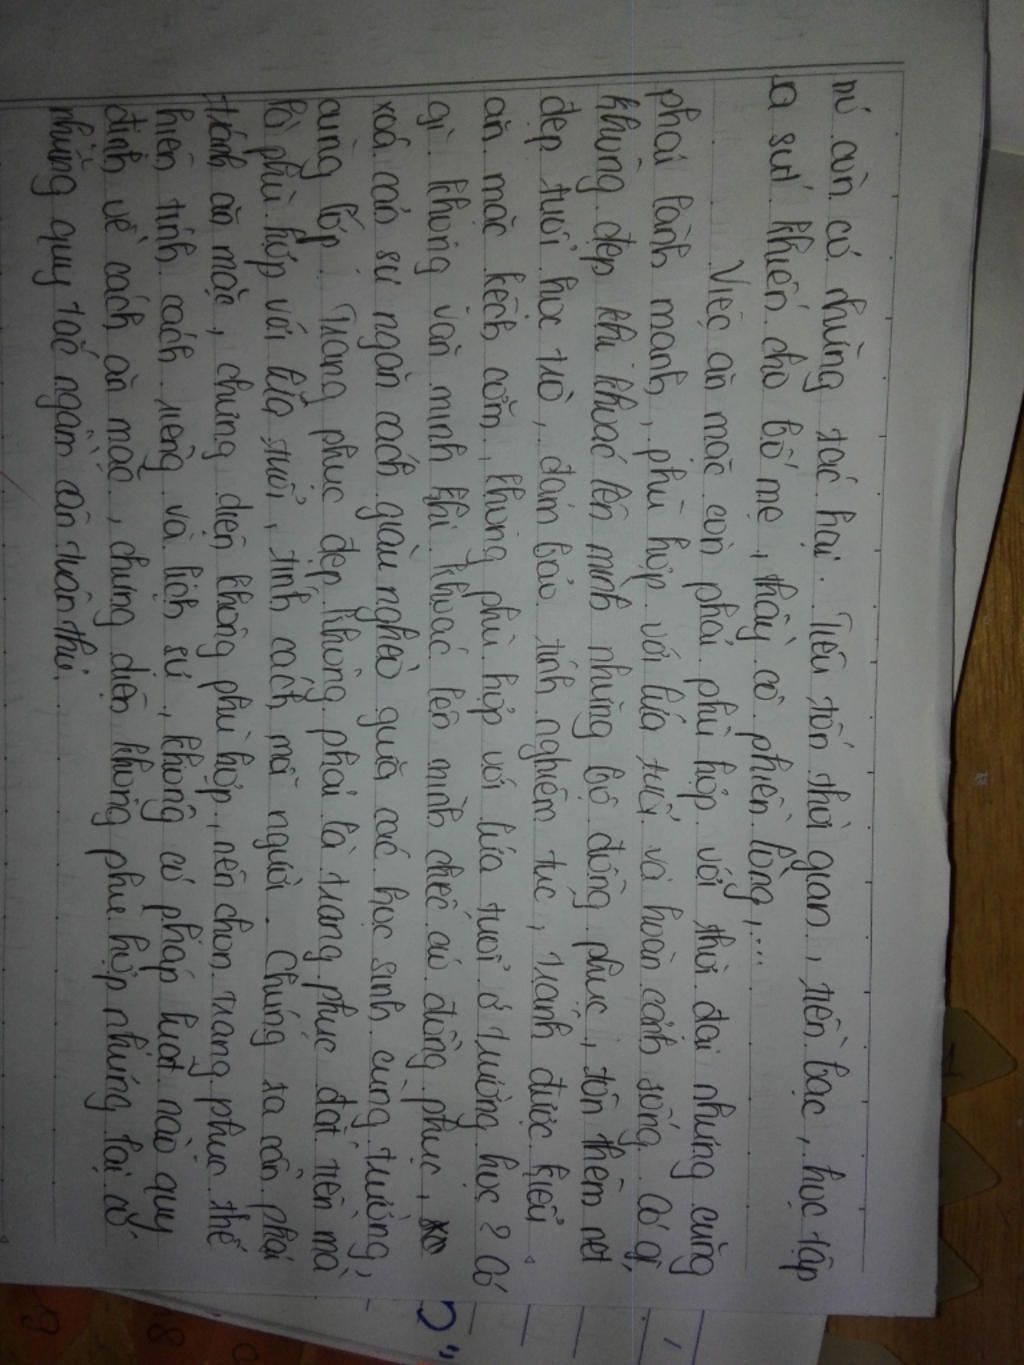 nó còn có những tác hại. Tiêu tốn thời gian, tiền bạc, học tập
sa sút khiến cho bố mẹ, thầy cô phiền lòng,...
Việc ăn mặc còn phải phù hợp với thời đại nhưng cũng
phải lành mạnh, phù hợp với lứa tuổi và hoàn cảnh sống. Có gì
không đẹp khi khoác lên mình những bộ đồng phục, tôn thêm nét
đẹp tuổi học trò, đảm bảo tính nghiêm túc, tránh được kiểu
ăn mặc kệch cỡm, không phù hợp với lứa tuổi ở trường học? Có
gì không văn minh khi khoác lên mình chiếc áo đồng phục,
xoá cản sự ngăn cách giàu nghèo giữa các học sinh cùng trường,
cùng lớp. Trang phục đẹp không phải là trang phục đắt tiền mà
là phù hợp với lứa tuổi, tính cách mỗi người. Chúng ta cần phải
tránh ăn mặc, chưng diện không phù hợp, nên chọn trang phục thể
hiện tính cách riêng và lịch sự, không có pháp luật nào quy
định về cách ăn mặc, chưng diện không phù hợp nhưng lại có
những quy tắc ngầm cần tuân thủ.